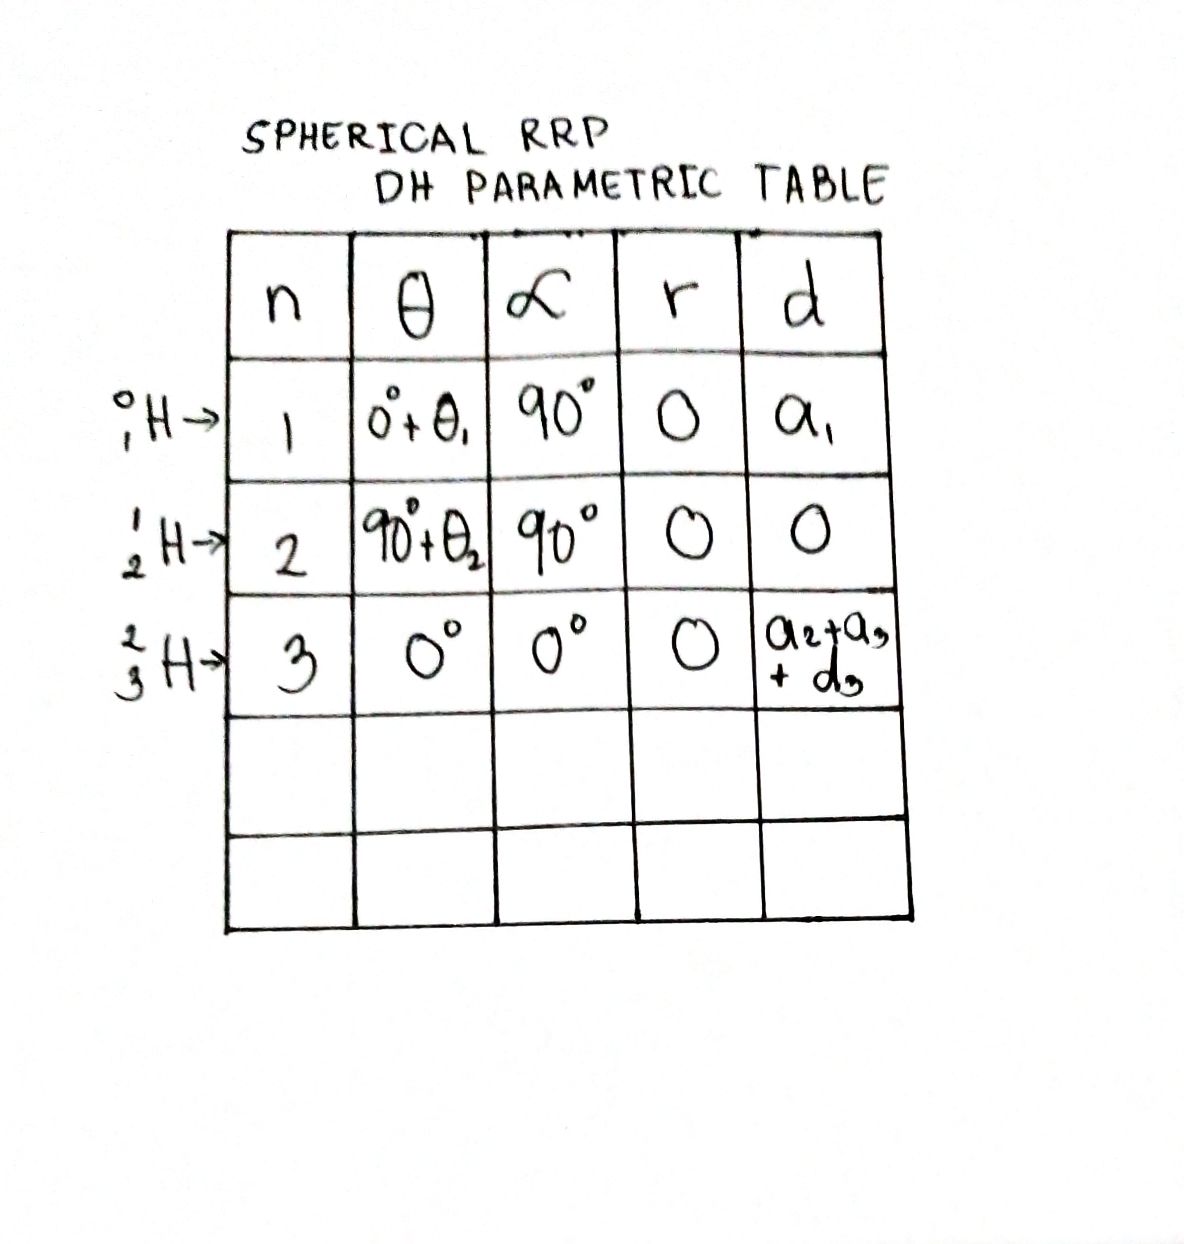 SPHERICAL RRP
DH PARAMETRIC TABLE
n θ α r d
⁰₁H→ 1 0°+θ₁ 90° 0 a₁
¹₂H→ 2 90°+θ₂ 90° 0 0
²₃H→ 3 0° 0° 0 a₂+a₃
+ d₃